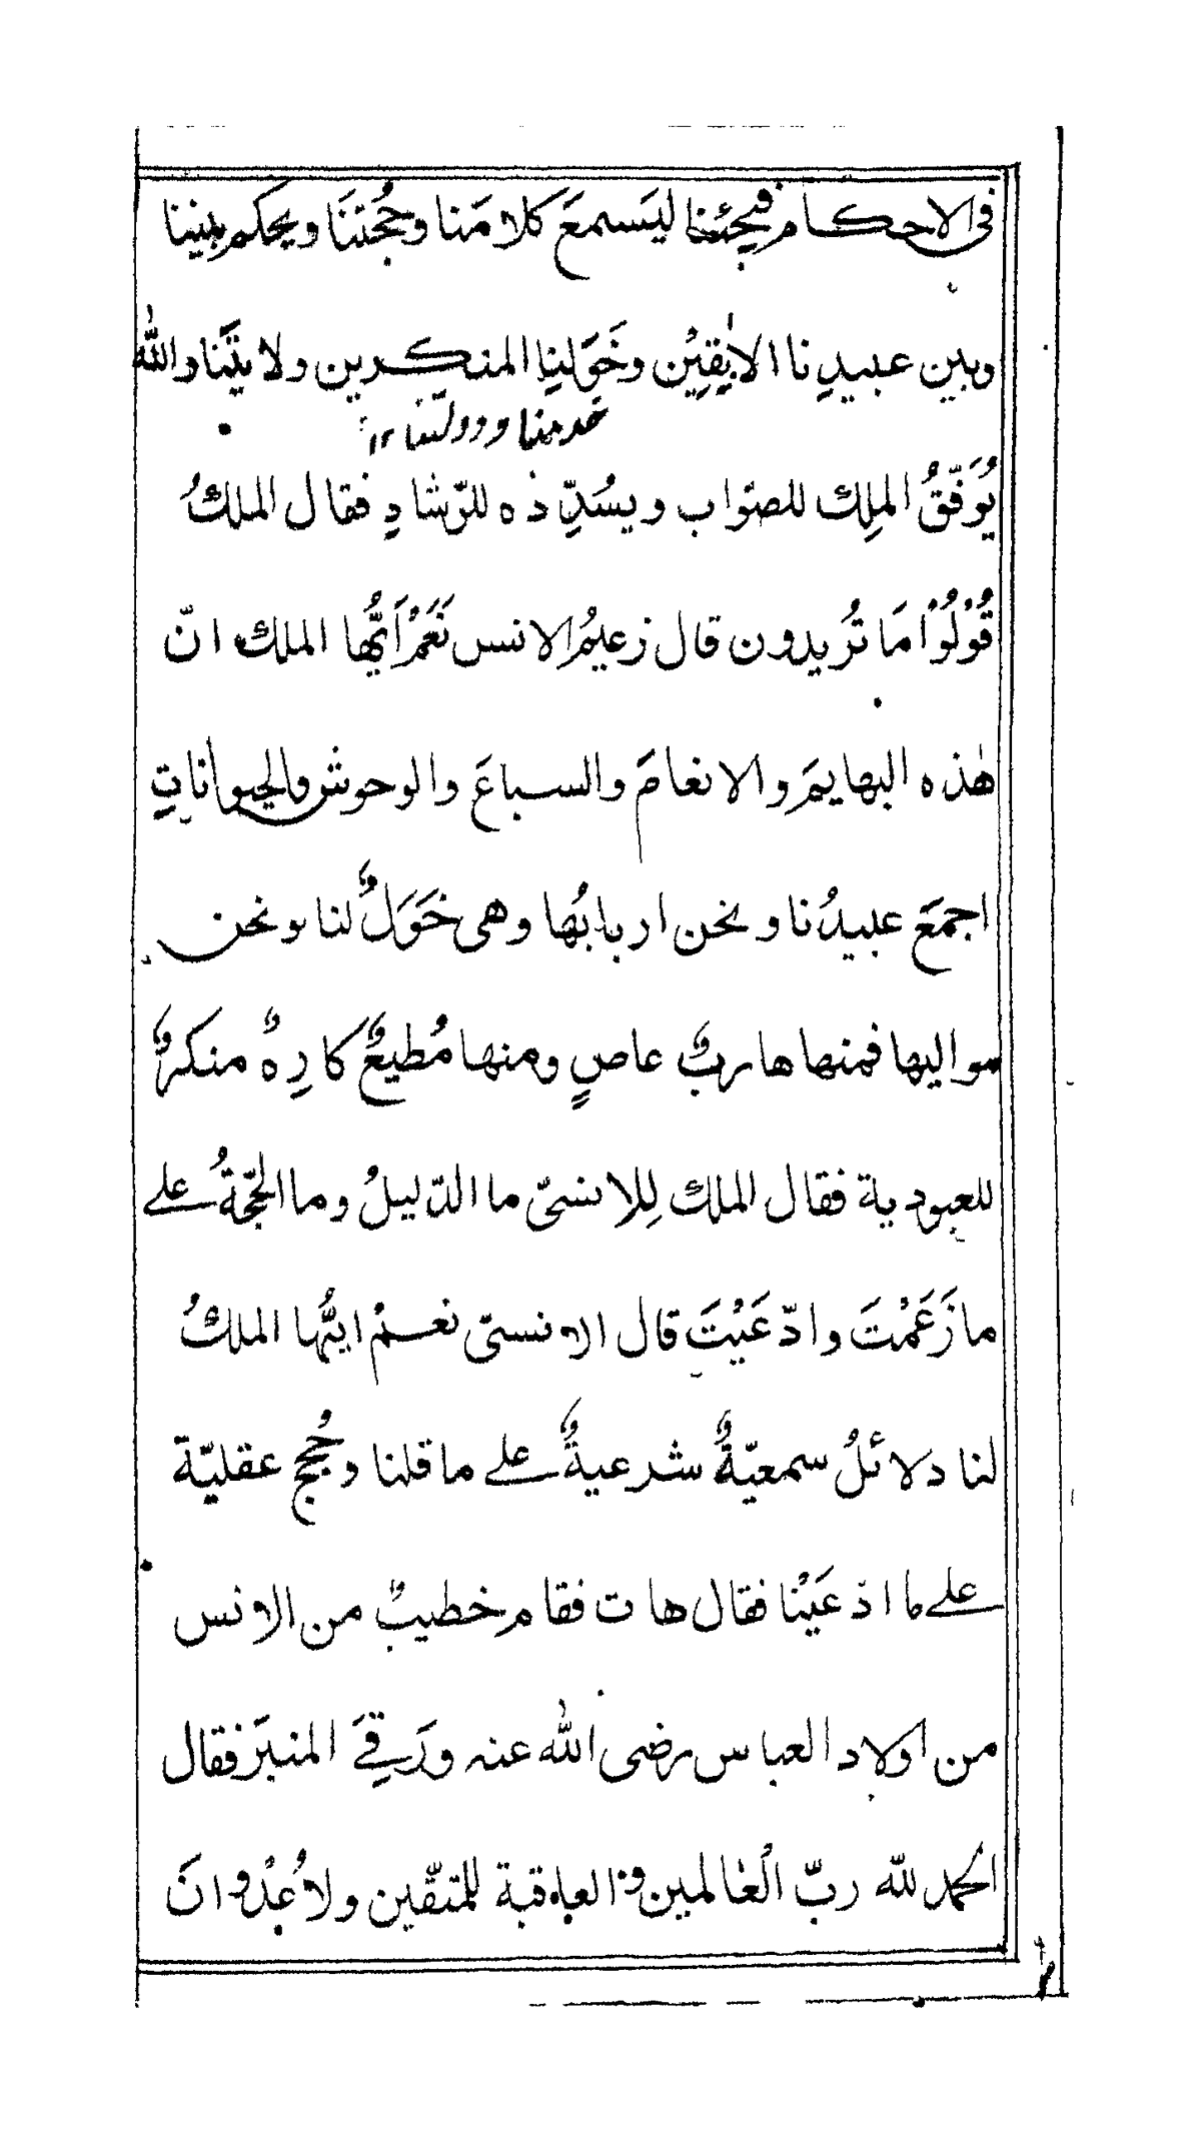 فى الاحكام فجئنا ليَسمعَ كلامَنا وحُجّتنَا ويحكم بيننا
وبين عبيدِنا الاٰبِقِيْن وخَوَلنِا المنكرين ولا يتَمنا والله
خدمنا و دولتنا ١٢
يُوَفّقُ الملِك للصّواب ويسُدِّدْه للرّشادِ فقال الملكُ
قُوْلُوْا مَا تُريدون قال زعيمُ الانس نَعَمْ اَيُّها الملك انّ
هٰذه البهايمَ والانعامَ والسباعَ والوحوش والحيواناتِ
اجمعَ عبيدُنا ونحن اربابُها وهى خَوَلٌ لنا ونحن
مواليها فمنها هاربٌ عاصٍ ومنها مُطيعٌ كارِهٌ منكرٌ
للعبودية فقال الملك لِلانسىّ ما الدّليلُ وما الحجّةُ على
ما زَعَمْتَ وادّعَيْتَ قال الانسىّ نعمْ ايُّها الملكُ
لنا دلائلُ سمعيّةٌ شرعيةٌ على ما قلنا وحُجج عقليّة
على ما ادّعَيْنا فقال هات فقام خطيبٌ من الانس
من اولاد العباس رضى الله عنه ورَقِےَ المنبرَ فقال
الحمد لله ربّ الْعٰالمين والعاقبة للمتقّين ولا عُدْوانَ